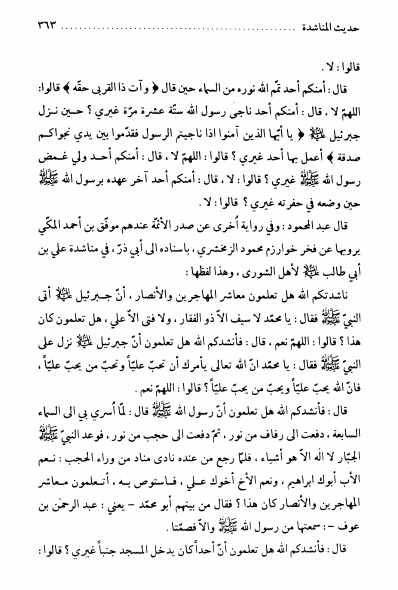 حديث المناشدة ........................................ ٣٦٣
قالوا : لا .
قال : أمنكم أحد تمّم الله نوره من السماء حين قال ﴿ وآت ذا القربى حقّه ﴾ قالوا :
اللهمّ لا ، قال : أمنكم أحد ناجى رسول الله ستّة عشرة مرّة غيري ؟ حـين نـزل
جبرئيل ﷺ ﴿ يا أيّها الذين آمنوا اذا ناجيتم الرسول فقدّموا بين يدي نجواكـم
صدقة ﴾ أعمل بها أحد غيري ؟ قالوا : اللهمّ لا ، قال : أمنكم أحـد ولي غـمض
رسول الله ﷺ غيري ؟ قالوا : لا ، قال : أمنكم أحد آخر عهده برسول الله ﷺ
حين وضعه في حفرته غيري ؟ قالوا : لا .
قال عبد المحمود : وفي رواية أُخرى عن صدر الأئمّة عندهم موفّق بن أحمد المكّي
يرويها عن فخر خوارزم محمود الزمخشري ، باسناده الى أبي ذرّ ، في مناشدة علي بن
أبي طالب لأهل الشورى ، وهذا لفظها :
ناشدتكم الله هل تعلمون معاشر المهاجرين والأنصار ، أنّ جـبرئيل أتى
النبيّ ﷺ فقال : يا محمّد لا سيف الاّ ذو الفقار ، ولا فتى الاّ علي ، هل تعلمون كان
هذا ؟ قالوا : اللهمّ نعم ، قال : فأنشدكم الله هل تعلمون أنّ جبرئيل نزل على
النبيّ ﷺ فقال : يا محمّد انّ الله تعالى يأمرك أن تحبّ عليّاً وتحبّ من يحبّ عليّاً ،
فانّ الله يحبّ عليّاً ويحبّ من يحبّ عليّاً ؟ قالوا : اللهمّ نعم .
قال : فأنشدكم الله هل تعلمون أنّ رسول الله ﷺ قال : لمّا اُسري بي الى السماء
السابعة ، دفعت الى رفاف من نور ، ثمّ دفعت الى حجب من نور ، فوعد النبيّ ﷺ
الجبّار لا اله الاّ هو أشياء ، فلمّا رجع من عنده نادى مناد من وراء الحجب : نـعم
الأب أبوك ابراهيم ، ونعم الأخ أخوك عـلي ، فـاستوص بـه ، أتـعلمون مـعاشر
المهاجرين والأنصار كان هذا ؟ فقال من بينهم أبو محمّد - يعني : عبد الرحمٰن بن
عوف - : سمعتها من رسول الله ﷺ والاّ فصمّتا .
قال : فأنشدكم الله هل تعلمون أنّ أحداً كان يدخل المسجد جنباً غيري ؟ قالوا :